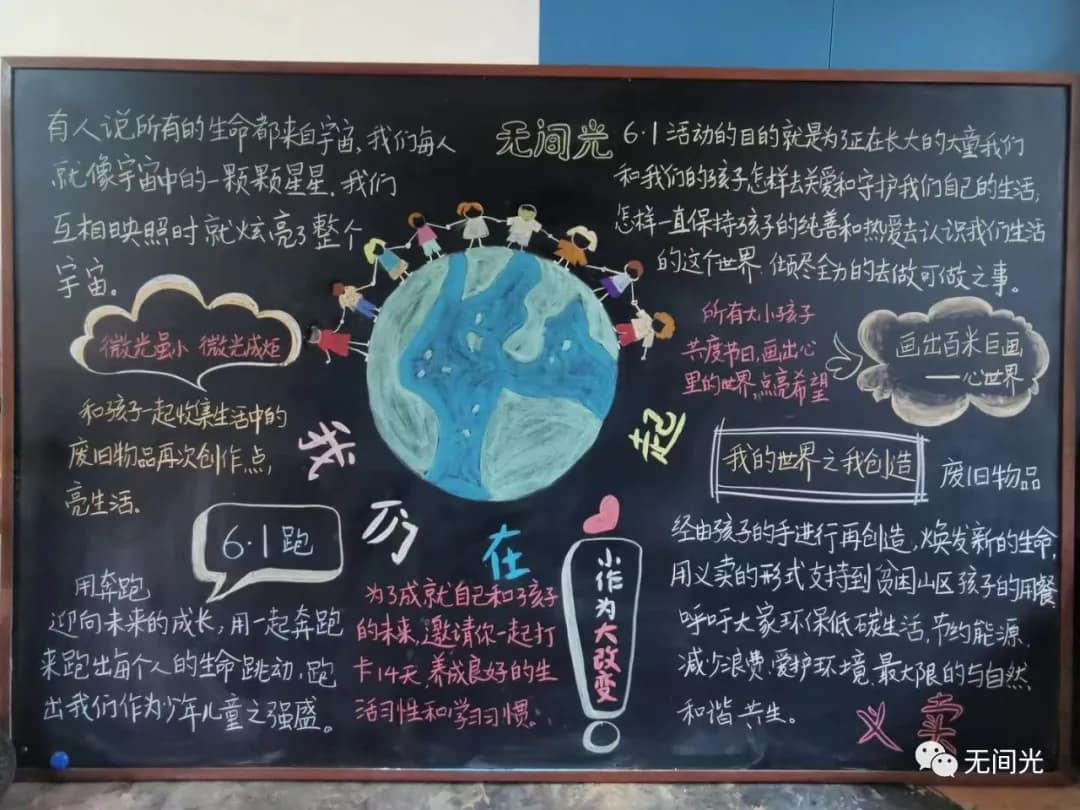 有人说所有的生命都来自宇宙,我们每人
就像宇宙中的一颗颗星星.我们
互相映照时就炫亮了整个
宇宙。
无间光
6·1活动的目的就是为了正在长大的大童我们
和我们的孩子怎样去关爱和守护我们自己的生活;
怎样一直保持孩子的纯善和热爱去认识我们生活
的这个世界.倾尽全力的去做可做之事。
微光虽小 微光成炬
和孩子一起收集生活中的
废旧物品再次创作点,
亮生活.
所有大小孩子
共度节日,画出心
里的世界,点亮希望
画出百米巨画
——心世界
我们在一起
我的世界之我创造
废旧物品
经由孩子的手进行再创造,焕发新的生命,
用义卖的形式支持到贫困山区孩子的用餐
呼吁大家环保低碳生活,节约能源.
减少浪费.爱护环境,最大限的与自然
和谐共生。
义卖
6·1跑
用奔跑
迎向未来的成长,用一起奔跑
来跑出每个人的生命跳动,跑
出我们作为少年儿童之强盛。
为了成就自己和孩子
的未来,邀请你一起打
卡14天,养成良好的生
活习性和学习习惯。
小作为大改变
无间光